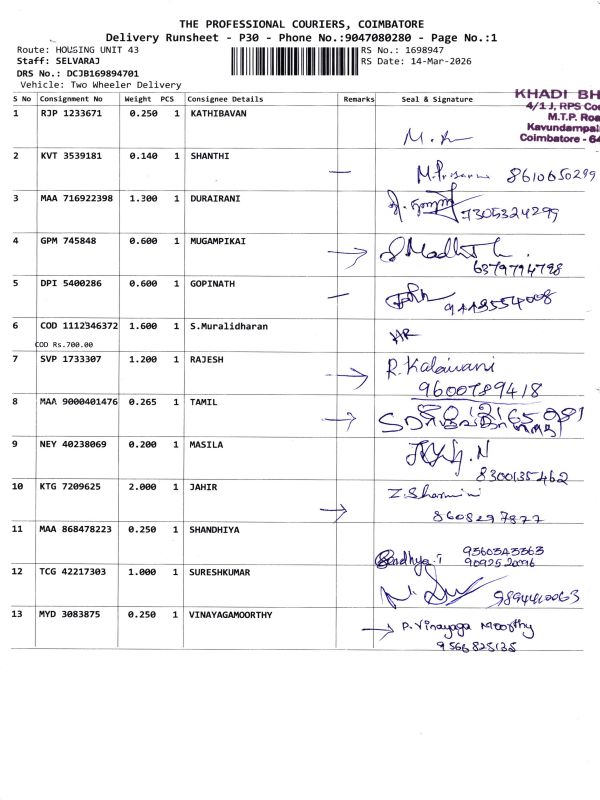 THE PROFESSIONAL COURIERS, COIMBATORE
Delivery Runsheet - P30 - Phone No.:9047080280 - Page No.:1
Route: HOUSING UNIT 43 RS No.: 1698947
Staff: SELVARAJ RS Date: 14-Mar-2026
DRS No.: DCJB169894701
Vehicle: Two Wheeler Delivery
KHADI BH
4/1 J, RPS Co
M.T.P. Roa
Kavundampal
Coimbatore - 64
S No Consignment No Weight PCS Consignee Details Remarks Seal & Signature
1 RJP 1233671 0.250 1 KATHIBAVAN
2 KVT 3539181 0.140 1 SHANTHI — 8610650299
3 MAA 716922398 1.300 1 DURAIRANI 7305324299
4 GPM 745848 0.600 1 MUGAMPIKAI → 6379794798
5 DPI 5400286 0.600 1 GOPINATH — 9443554008
6 COD 1112346372 1.600 1 S.Muralidharan
COD Rs.700.00
7 SVP 1733307 1.200 1 RAJESH → R. Kalaivani
9600789418
8 MAA 9000401476 0.265 1 TAMIL →
9 NEY 40238069 0.200 1 MASILA
8300135462
10 KTG 7209625 2.000 1 JAHIR → Z. Sharmini
8608297877
11 MAA 868478223 0.250 1 SHANDHIYA
Sandhya.T
12 TCG 42217303 1.000 1 SURESHKUMAR
13 MYD 3083875 0.250 1 VINAYAGAMOORTHY → P. Vinayaga Moorthy
9566825135